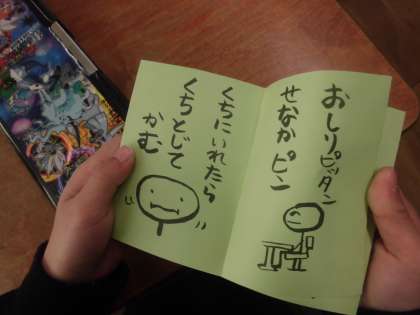 おしりピッタン
せなかピン
くちにいれたら
くちとじて
かむ